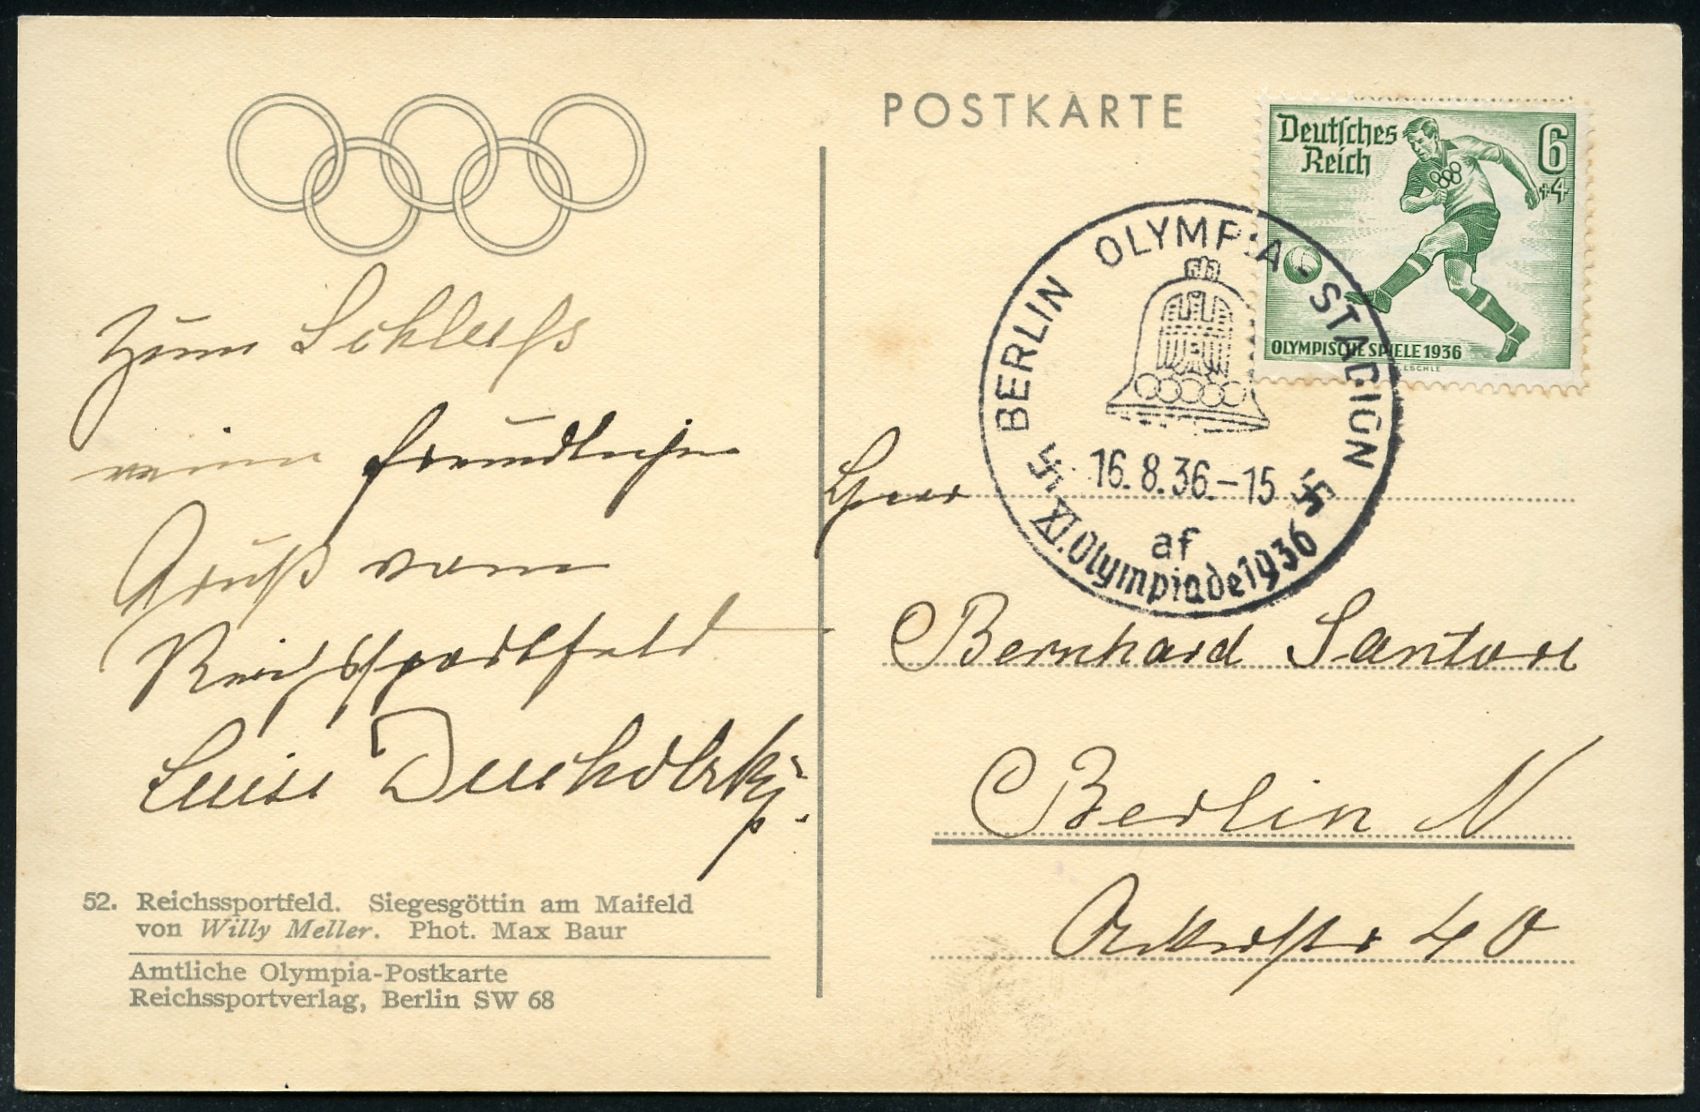 POSTKARTE
Deutsches
Reich
6
+4
OLYMPISCHE SPIELE 1936
BERLIN OLYMPIA-STADION
16.8.36.-15
af
XI. Olympiade 1936
Zum Schluß
einen freundlichen
Gruß vom
Reichssportfeld
Luise
52. Reichssportfeld. Siegesgöttin am Maifeld
von Willy Meller. Phot. Max Baur
Amtliche Olympia-Postkarte
Reichssportverlag, Berlin SW 68
Herrn
Bernhard
Berlin N
40